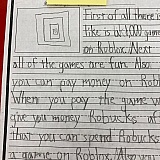 First of all there
like is a 1,000 games
on Roblox. Next
all of the games are fun. Also
you can pay money on Robl
When you pay the game w
give you money Robucks af
that you can spend Robucks
a game on Roblox. Also you